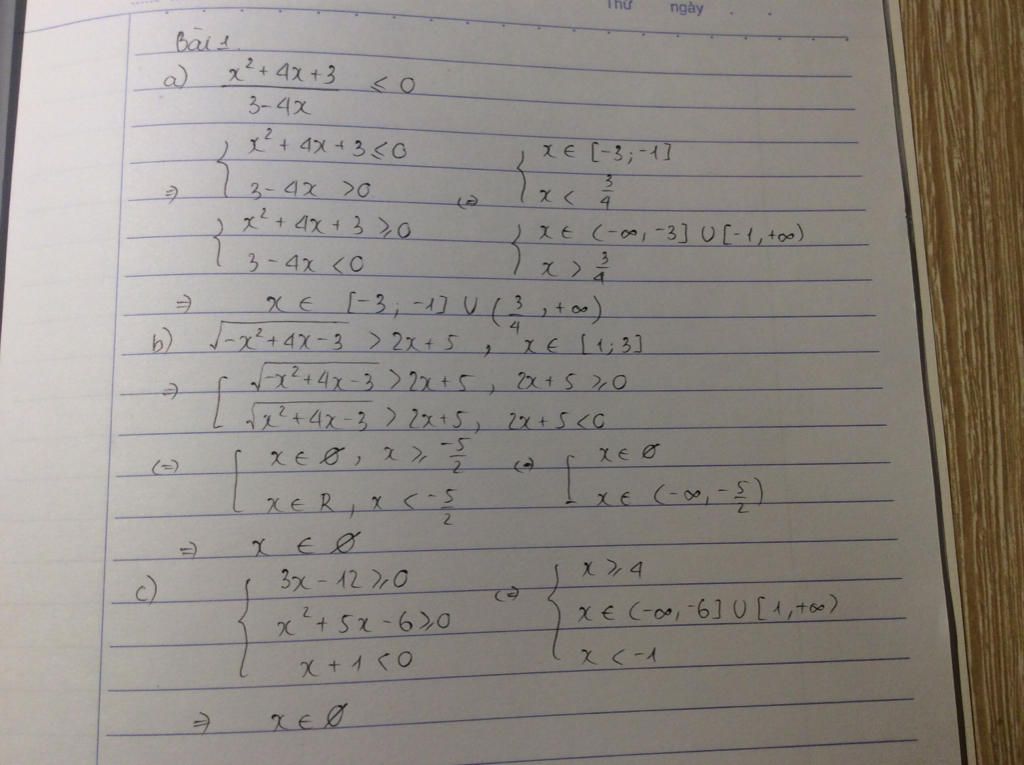 Thứ ngày . .
Bài 1.
a) \frac{x² + 4x + 3}{3 - 4x} ≤ 0
{ x² + 4x + 3 ≤ 0 { x ∈ [-3; -1]
=> { 3 - 4x > 0 (=> { x < \frac{3}{4}
{ x² + 4x + 3 ≥ 0 { x ∈ (-∞, -3] ∪ [-1, +∞)
{ 3 - 4x < 0 { x > \frac{3}{4}
=> x ∈ [-3; -1] ∪ (\frac{3}{4}, +∞)
b) √(-x² + 4x - 3) > 2x + 5 , x ∈ [1; 3]
=> [ √(-x² + 4x - 3) > 2x + 5 , 2x + 5 ≥ 0
[ √(x² + 4x - 3) > 2x + 5 , 2x + 5 < 0
(=) [ x ∈ ∅ , x ≥ \frac{-5}{2} (=> [ x ∈ ∅
[ x ∈ R , x < \frac{-5}{2} [ x ∈ (-∞, -\frac{5}{2})
=> x ∈ ∅
c) { 3x - 12 ≥ 0 (=> { x ≥ 4
{ x² + 5x - 6 ≥ 0 { x ∈ (-∞, -6] ∪ [1, +∞)
{ x + 1 < 0 { x < -1
=> x ∈ ∅